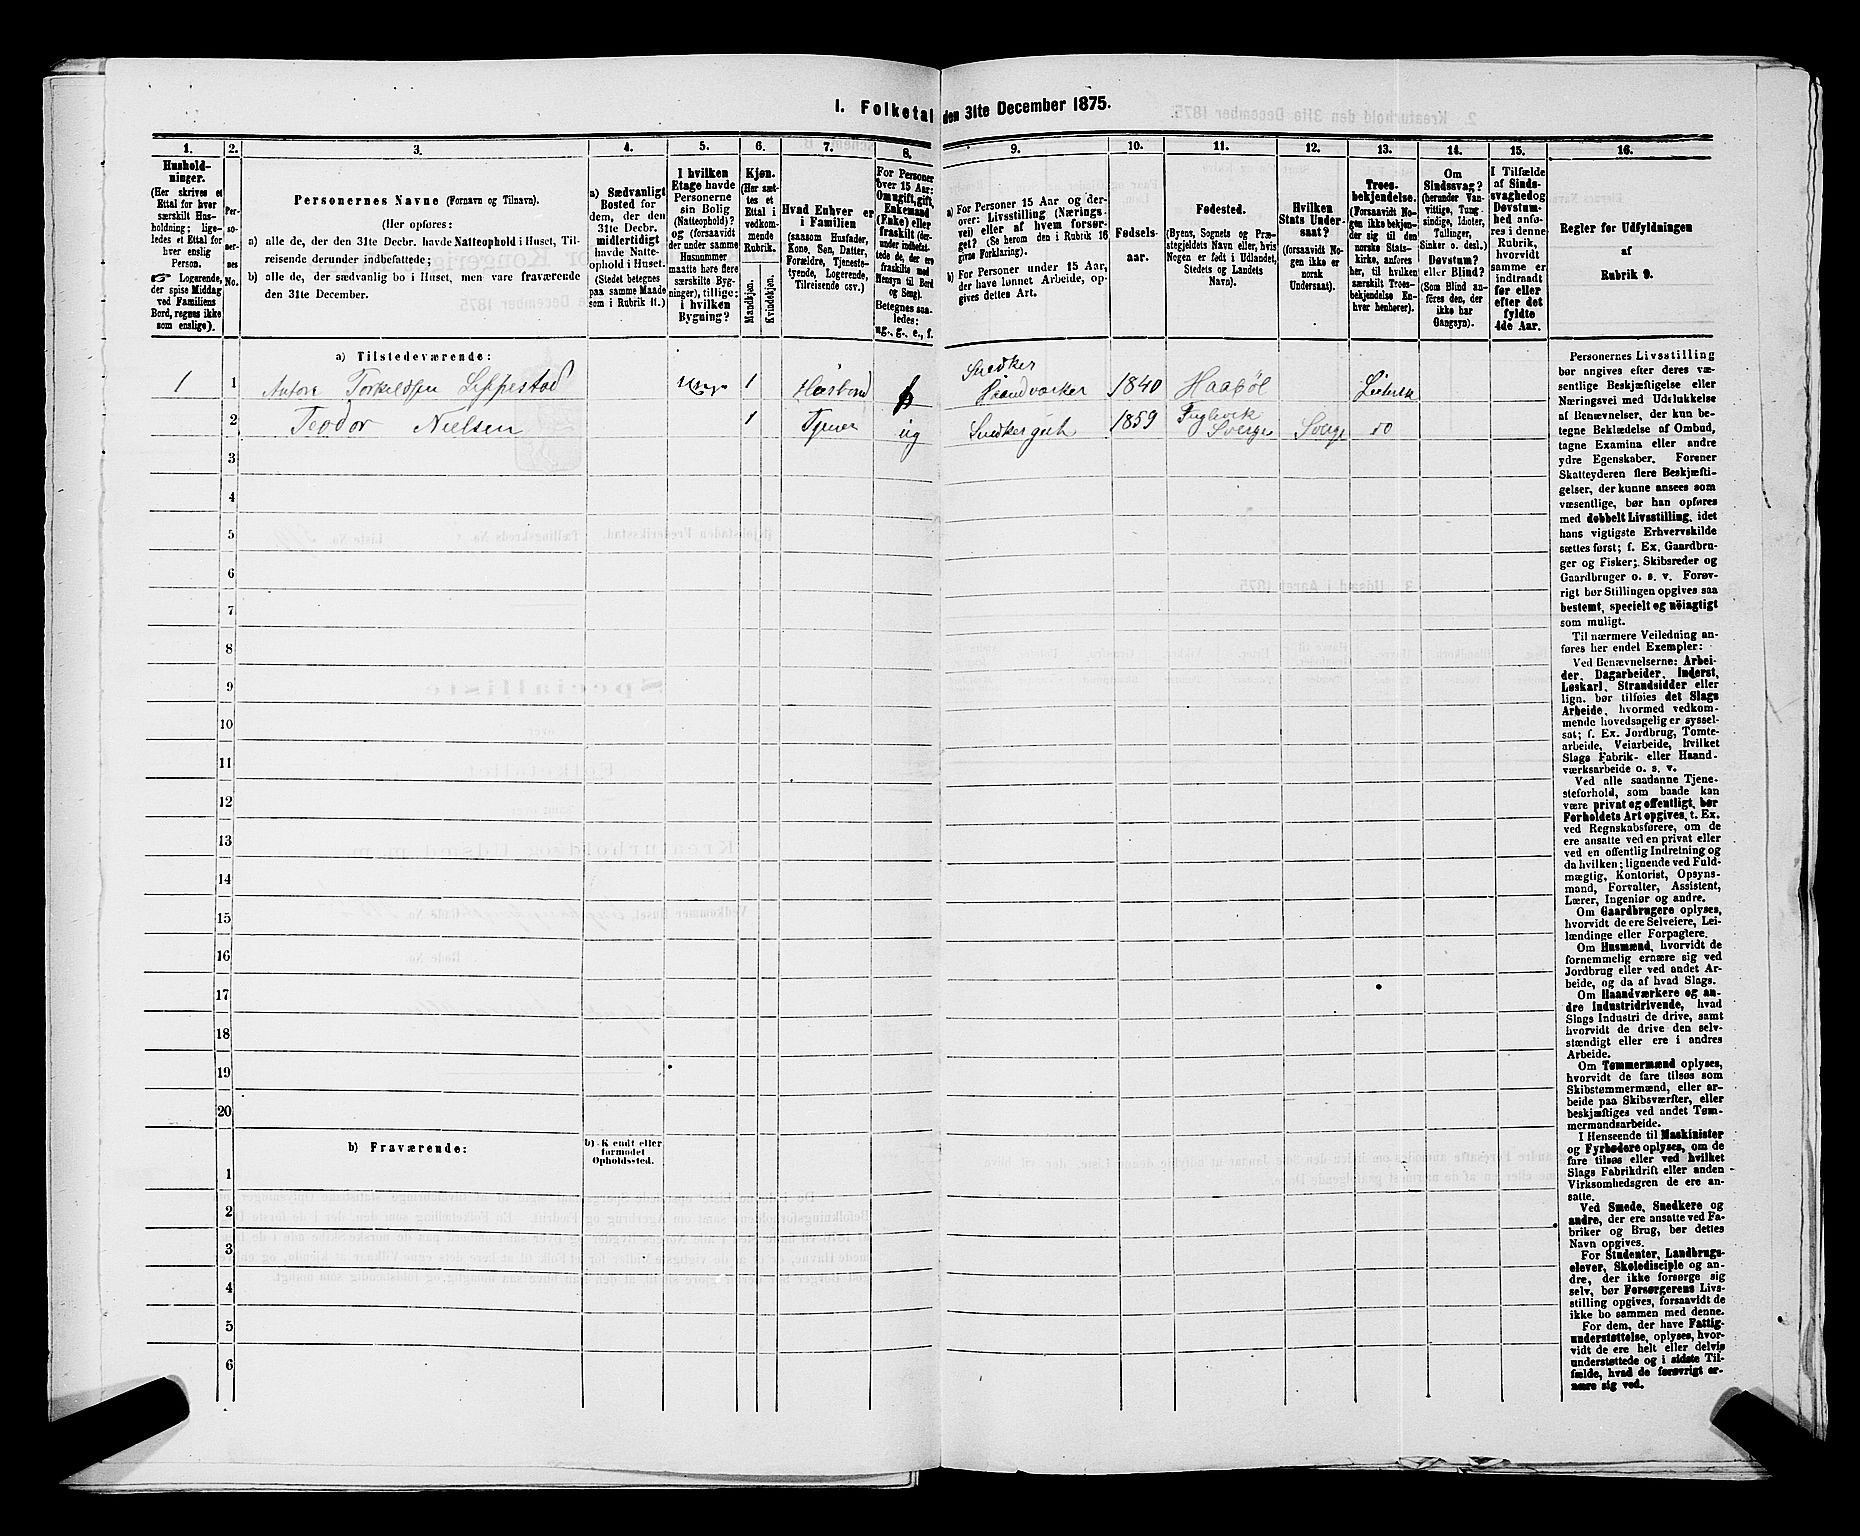 1. Folketal den 31te December 1875.
1. 2. 3. 4. 5. 6. 7. 8. 9. 10. 11. 12. 13. 14. 15. 16.
Hushold-
ninger.
(Her skrives et
Ettal for hver
særskilt Hus-
holdning; lige-
ledes et Ettal for
hver enslig
Person.
☞ Logerende,
der spise Middag
ved Familiens
Bord, regnes ikke
som enslige).
Per-
soner-
nes
No.
Personernes Navne (Fornavn og Tilnavn).
(Her opføres:
a) alle de, der den 31te Decbr. havde Natteophold i Huset, Til-
reisende derunder indbefattede;
b) alle de, der sædvanlig bo i Huset, men vare fraværende
den 31te December.
a) Sædvanligt
Bosted for
dem, der den
31te Decbr.
midlertidigt
havde Natte-
ophold i Huset.
(Stedet betegnes
paa samme Maade
som i Rubrik 11.)
I hvilken
Etage havde
Personerne
sin Bolig
(Natteophold)?
og (forsaavidt
der under samme
Husnummer
maatte høre flere
særskilte Byg-
ninger), tillige:
i hvilken
Bygning?
Kjøn.
(Her sæt-
tes et
Ettal i
vedkom-
mende
Rubrik.
Mandkjøn.
Kvindekjøn.
Hvad Enhver er
i Familien
(saasom Husfader,
Kone, Søn, Datter,
Forældre, Tjeneste-
tyende, Logerende,
Tilreisende osv.)
For Personer
over 15 Aar:
Om ugift, gift,
Enkemand
(Enke) eller
fraskilt (der-
under indbefat-
tede de, der ere
fraskilte med
Hensyn til Bord
og Seng).
Betegnes saa-
ledes:
ug., g., e., f.
a) For Personer 15 Aar og der-
over: Livsstilling (Nærings-
vei) eller af hvem forsør-
get? (Se herom den i Rubrik 16
givne Forklaring).
b) For Personer under 15 Aar,
der have lønnet Arbeide, op-
gives dettes Art.
Fødsels-
aar.
Fødested.
(Byens, Sognets og Præ-
stegjeldets Navn eller, hvis
Nogen er født i Udlandet,
Stedets og Landets
Navn).
Hvilken
Stats Under-
saat?
(forsaavidt No-
gen ikke er
norsk
Undersaat).
Troes-
bekjendelse.
(Forsaavidt No-
gen ikke bekjen-
der sig til den
norske Stats-
kirke, anføres
her, til hvilken
særskilt Troes-
bekjendelse En-
hver henhører).
Om
Sindssvag?
(herunder Van-
vittige, Tung-
sindige, Idioter,
Tullinger,
Sinker o. desl.)
Døvstum?
eller Blind?
(Som Blind an-
føres den, der
ikke har
Gangsyn).
I Tilfælde
af Sinds-
svaghed og
Døvstum-
hed anfø-
res i denne
Rubrik,
hvorvidt
samme er
indtraadt
før eller
efter det
fyldte
4de Aar.
Regler for Udfyldningen
af
Rubrik 9.
a) Tilstedeværende:
1 1 Antore Torkildsen Lippestad 1 Husbond Snedker Haandværker 1840 Haabøl Luthersk
2 Teodor Nielsen 1 Tjener ug Snedkergut 1859 Fuglevik Sverge Sverge do
3
4
5
6
7
8
9
10
11
12
13
14
15
16
17
18
19
20
b) Fraværende:
b) Kjendt eller
formodet
Opholdssted.
1
2
3
4
5
6
Personernes Livsstilling
bør angives efter deres væ-
sentlige Beskjæftigelse eller
Næringsvei med Udelukkelse
af Benævnelser, der kun be-
tegne Beklædelse af Ombud,
tagne Examina eller andre
ydre Egenskaber. Forener
Skatteyderen flere Beskjæfti-
gelser, der kunne ansees som
væsentlige, bør han opføres
med dobbelt Livsstilling, idet
hans vigtigste Erhvervskilde
sættes først; f. Ex. Gaardbru-
ger og Fisker; Skibsreder og
Gaardbruger o. s. v. Forøv-
rigt bør Stillingen opgives saa
bestemt, specielt og nøiagtigt
som muligt.
Til nærmere Veiledning an-
føres her endel Exempler:
Ved Benævnelserne: Arbei-
der, Dagarbeider, Inderst,
Løskarl, Strandsidder eller
lign. bør tilføies det Slags
Arbeide, hvormed vedkom-
mende hovedsagelig er syssel-
sat; f. Ex. Jordbrug, Tomte-
arbeide, Veiarbeide, hvilket
Slags Fabrik- eller Haand-
værksarbeide o. s. v.
Ved alle saadanne Tjene-
steforhold, som baade kan
være privat og offentligt, bør
Forholdets Art opgives, t. Ex.
ved Regnskabsførere, om de
ere ansatte ved en privat eller
ved en offentlig Indretning og
da hvilken; lignende ved Fuld-
mægtig, Kontorist, Opsyns-
mand, Forvalter, Assistent,
Lærer, Ingeniør og andre.
Om Gaardbrugere oplyses,
hvorvidt de ere Selveiere, Lei-
lændinge eller Forpagtere.
Om Husmænd, hvorvidt de
fornemmelig ernære sig ved
Jordbrug eller ved andet Ar-
beide, og da af hvad Slags.
Om Haandværkere og an-
dre Industridrivende, hvad
Slags Industri de drive, samt
hvorvidt de drive den selv-
stændigt eller ere i andres
Arbeide.
Om Tømmermænd oplyses,
hvorvidt de fare tilsøs som
Skibstømmermænd, eller ar-
beide paa Skibsværfter, eller
beskjæftiges ved andet Tøm-
mermandsarbeide.
I Henseende til Maskinister
og Fyrbødere oplyses, om de
fare tilsøs eller ved hvilket
Slags Fabrikdrift eller anden
Virksomhedsgren de ere an-
satte.
Ved Smede, Snedkere og
andre, der ere ansatte ved Fa-
briker og Brug, bør dettes
Navn opgives.
For Studenter, Landbrugs-
elever, Skoledisciple og an-
dre, der ikke forsørge sig
selv, bør Forsørgerens Livs-
stilling opgives, forsaavidt de
ikke bo sammen med denne.
For dem, der have Fattig-
understøttelse, oplyses, hvor-
vidt de ere helt eller delvis
understøttede og i sidste Til-
fælde, hvad de forøvrigt er-
nære sig ved.